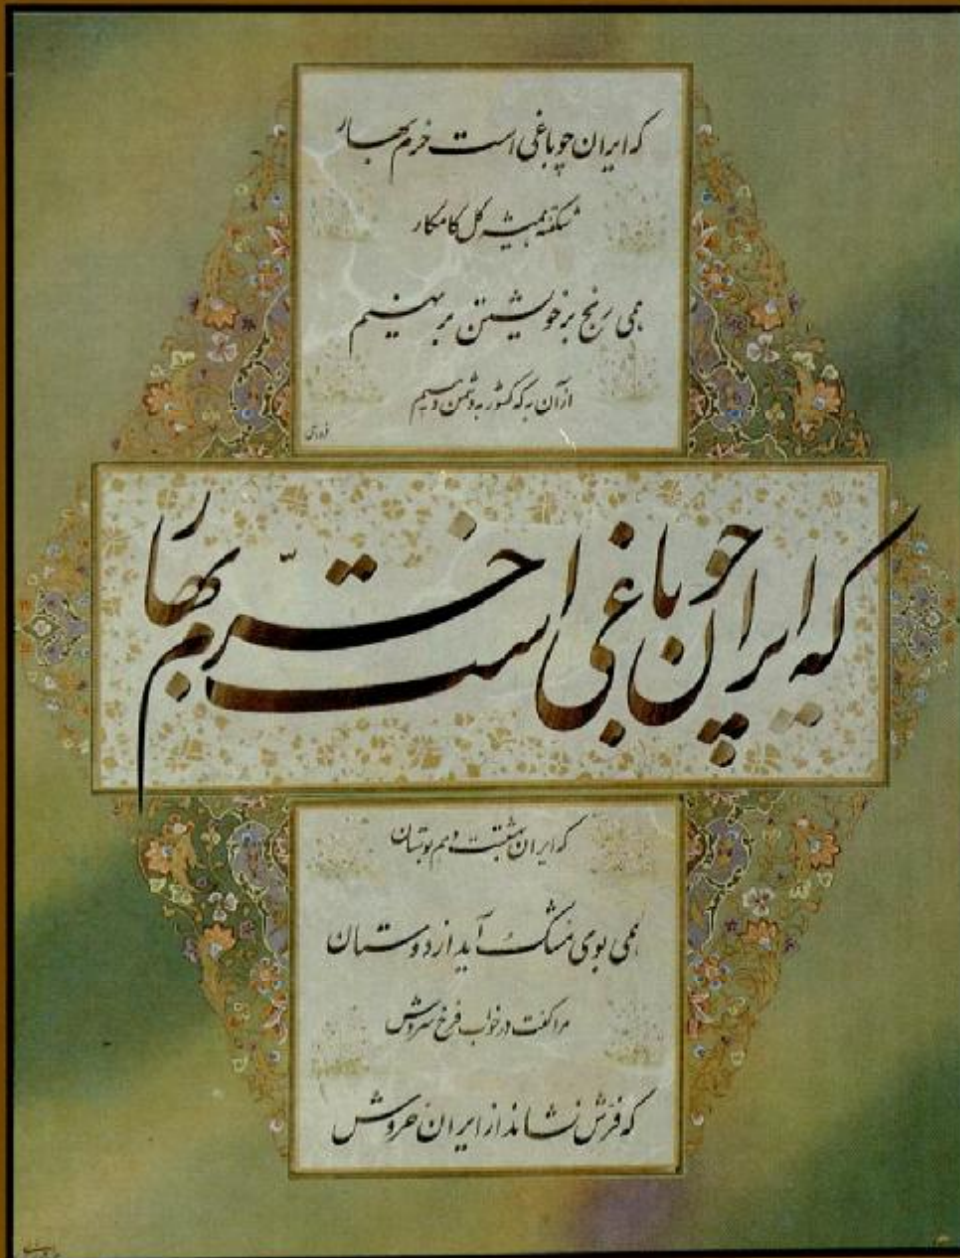 که ایران چو باغی است خرم بهار
شکفته همیشه گل کامکار
همی رنج بر خویشتن بر نهیم
از آن به که کشور به دشمن دهیم
فردوسی
که ایران چو باغی است خرّم بهار
که ایران بهشت است و هم بوستان
همی بوی مشک آید از دوستان
مرا گفت در خواب فرخ سروش
که فرش نشاند از ایران خروش